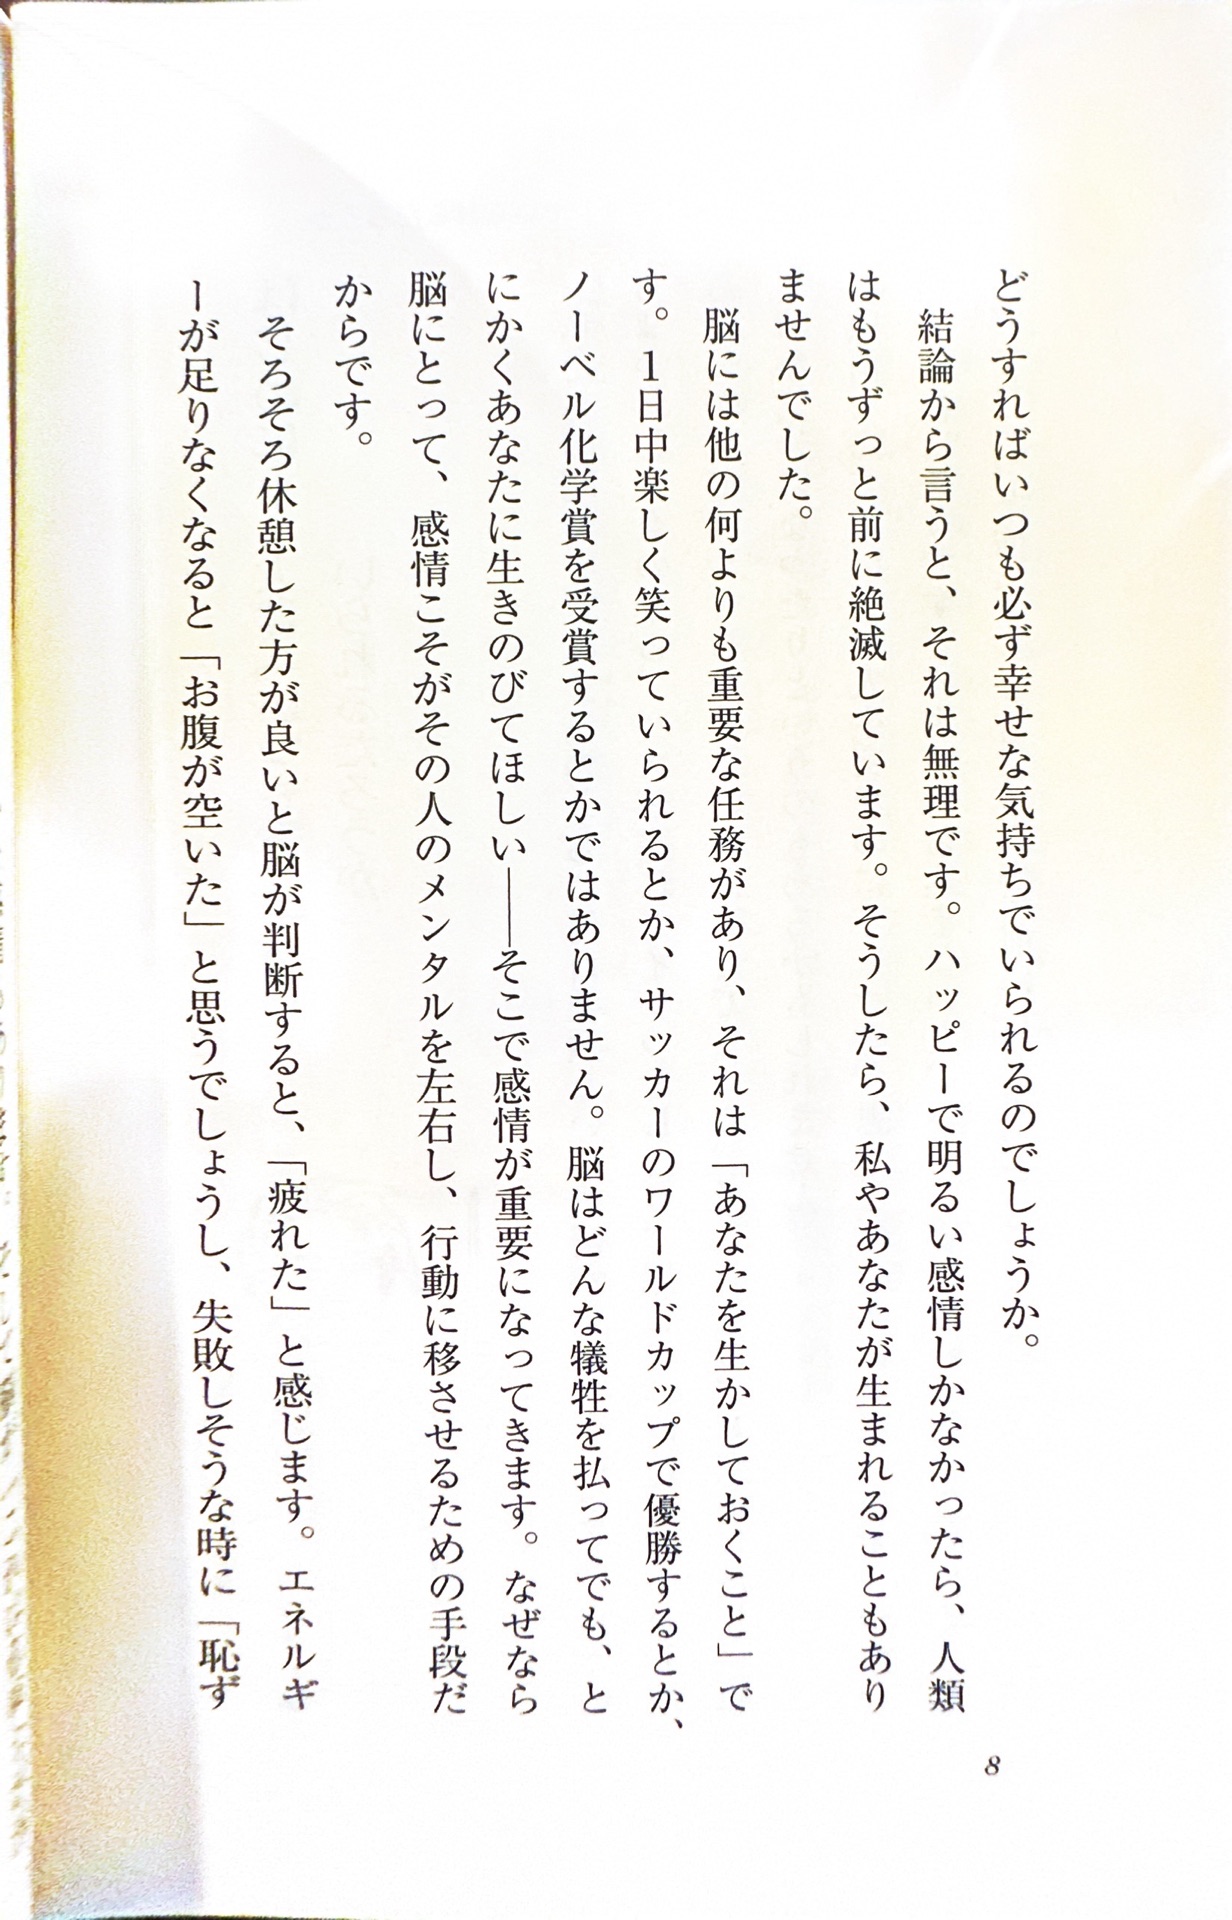 どうすればいつも必ず幸せな気持ちでいられるのでしょうか。
結論から言うと、それは無理です。ハッピーで明るい感情しかなかったら、人類
はもうずっと前に絶滅しています。そうしたら、私やあなたが生まれることもあり
ませんでした。
脳には他の何よりも重要な任務があり、それは「あなたを生かしておくこと」で
す。1日中楽しく笑っていられるとか、サッカーのワールドカップで優勝するとか、
ノーベル化学賞を受賞するとかではありません。脳はどんな犠牲を払ってでも、と
にかくあなたに生きのびてほしい――そこで感情が重要になってきます。なぜなら
脳にとって、感情こそがその人のメンタルを左右し、行動に移させるための手段だ
からです。
そろそろ休憩した方が良いと脳が判断すると、「疲れた」と感じます。エネルギ
ーが足りなくなると「お腹が空いた」と思うでしょうし、失敗しそうな時に「恥ず
8